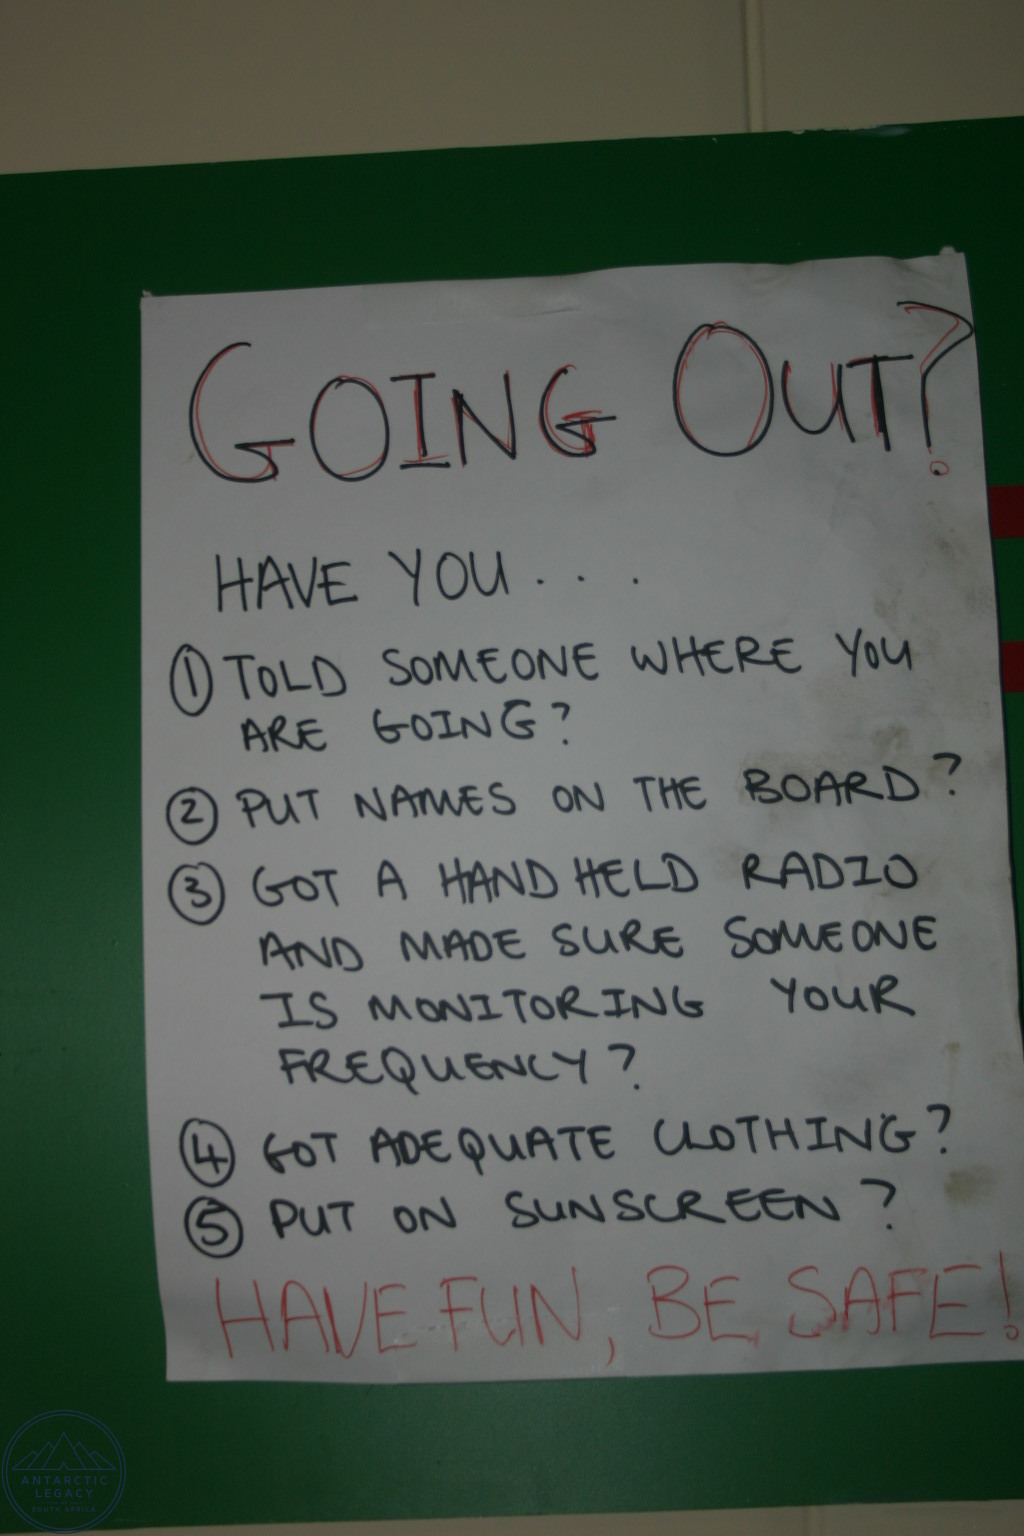 GOING OUT?
HAVE YOU...
1 TOLD SOMEONE WHERE YOU
ARE GOING?
2 PUT NAMES ON THE BOARD?
3 GOT A HANDHELD RADIO
AND MADE SURE SOMEONE
IS MONITORING YOUR
FREQUENCY?
4 GOT ADEQUATE CLOTHING?
5 PUT ON SUNSCREEN?
HAVE FUN, BE SAFE!
ANTARCTIC
LEGACY
OF
SOUTH AFRICA